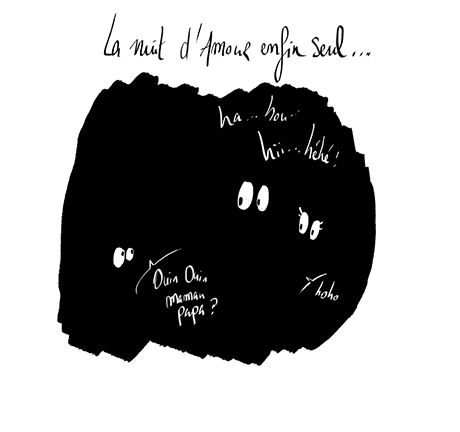 La nuit d'Amour enfin seul...
ha... hou..
hiii...héhé!
hoho
Ouin Ouin
maman
papa?